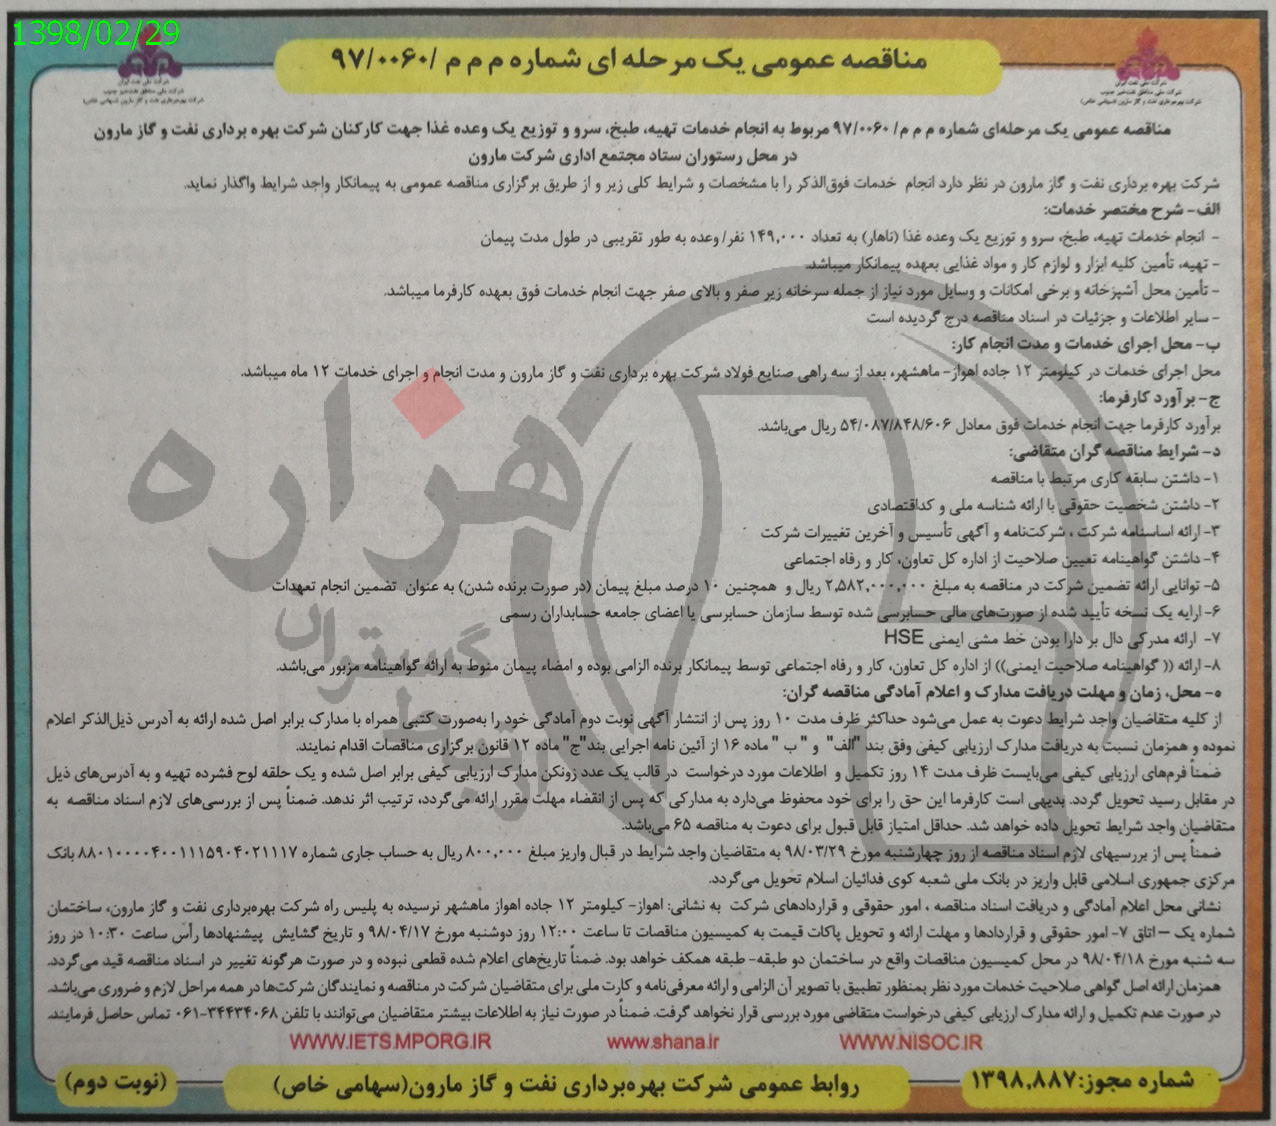 1398/02/29
مناقصه عمومی یک مرحله ای شماره م م م /۹۷/۰۰۶۰
شرکت ملی نفت ایران
شرکت ملی مناطق نفت‌خیز جنوب
شرکت بهره‌برداری نفت و گاز مارون (سهامی خاص)
شرکت ملی نفت ایران
شرکت ملی مناطق نفت‌خیز جنوب
شرکت بهره‌برداری نفت و گاز مارون (سهامی خاص)
مناقصه عمومی یک مرحله‌ای شماره م م م/ ۹۷/۰۰۶۰ مربوط به انجام خدمات تهیه، طبخ، سرو و توزیع یک وعده غذا جهت کارکنان شرکت بهره برداری نفت و گاز مارون
در محل رستوران ستاد مجتمع اداری شرکت مارون
شرکت بهره برداری نفت و گاز مارون در نظر دارد انجام خدمات فوق‌الذکر را با مشخصات و شرایط کلی زیر و از طریق برگزاری مناقصه عمومی به پیمانکار واجد شرایط واگذار نماید.
الف- شرح مختصر خدمات:
- انجام خدمات تهیه، طبخ، سرو و توزیع یک وعده غذا (ناهار) به تعداد ۱۴۹,۰۰۰ نفر/ وعده به طور تقریبی در طول مدت پیمان
- تهیه، تأمین کلیه ابزار و لوازم کار و مواد غذایی بعهده پیمانکار میباشد.
- تأمین محل آشپزخانه و برخی امکانات و وسایل مورد نیاز از جمله سرخانه زیر صفر و بالای صفر جهت انجام خدمات فوق بعهده کارفرما میباشد.
- سایر اطلاعات و جزئیات در اسناد مناقصه درج گردیده است
ب- محل اجرای خدمات و مدت انجام کار:
محل اجرای خدمات در کیلومتر ۱۲ جاده اهواز- ماهشهر، بعد از سه راهی صنایع فولاد شرکت بهره برداری نفت و گاز مارون و مدت انجام و اجرای خدمات ۱۲ ماه میباشد.
ج- برآورد کارفرما:
برآورد کارفرما جهت انجام خدمات فوق معادل ۵۴/۰۸۷/۸۴۸/۶۰۶ ریال می‌باشد.
د- شرایط مناقصه گران متقاضی:
۱- داشتن سابقه کاری مرتبط با مناقصه
۲- داشتن شخصیت حقوقی با ارائه شناسه ملی و کداقتصادی
۳- ارائه اساسنامه شرکت ، شرکت‌نامه و آگهی تأسیس و آخرین تغییرات شرکت
۴- داشتن گواهینامه تعیین صلاحیت از اداره کل تعاون، کار و رفاه اجتماعی
۵- توانایی ارائه تضمین شرکت در مناقصه به مبلغ ۲,۵۸۲,۰۰۰,۰۰۰ ریال و همچنین ۱۰ درصد مبلغ پیمان (در صورت برنده شدن) به عنوان تضمین انجام تعهدات
۶- ارایه یک نسخه تأیید شده از صورت‌های مالی حسابرسی شده توسط سازمان حسابرسی یا اعضای جامعه حسابداران رسمی
۷- ارائه مدرکی دال بر دارا بودن خط مشی ایمنی HSE
۸- ارائه (( گواهینامه صلاحیت ایمنی)) از اداره کل تعاون، کار و رفاه اجتماعی توسط پیمانکار برنده الزامی بوده و امضاء پیمان منوط به ارائه گواهینامه مزبور می‌باشد.
ه- محل، زمان و مهلت دریافت مدارک و اعلام آمادگی مناقصه گران:
از کلیه متقاضیان واجد شرایط دعوت به عمل می‌شود حداکثر ظرف مدت ۱۰ روز پس از انتشار آگهی نوبت دوم آمادگی خود را به‌صورت کتبی همراه با مدارک برابر اصل شده ارائه به آدرس ذیل‌الذکر اعلام
نموده و همزمان نسبت به دریافت مدارک ارزیابی کیفی وفق بند "الف" و " ب " ماده ۱۶ از آئین نامه اجرایی بند"ج" ماده ۱۲ قانون برگزاری مناقصات اقدام نمایند.
ضمناً فرم‌های ارزیابی کیفی می‌بایست ظرف مدت ۱۴ روز تکمیل و اطلاعات مورد درخواست در قالب یک عدد زونکن مدارک ارزیابی کیفی برابر اصل شده و یک حلقه لوح فشرده تهیه و به آدرس‌های ذیل
در مقابل رسید تحویل گردد. بدیهی است کارفرما این حق را برای خود محفوظ می‌دارد به مدارکی که پس از انقضاء مهلت مقرر ارائه می‌گردد، ترتیب اثر ندهد. ضمناً پس از بررسی‌های لازم اسناد مناقصه به
متقاضیان واجد شرایط تحویل داده خواهد شد. حداقل امتیاز قابل قبول برای دعوت به مناقصه ۶۵ می‌باشد.
ضمناً پس از بررسیهای لازم اسناد مناقصه از روز چهارشنبه مورخ ۹۸/۰۳/۲۹ به متقاضیان واجد شرایط در قبال واریز مبلغ ۸۰۰,۰۰۰ ریال به حساب جاری شماره ۸۸۰۱۰۰۰۰۴۰۰۱۱۱۵۹۰۴۰۲۱۱۱۷ بانک
مرکزی جمهوری اسلامی قابل واریز در بانک ملی شعبه کوی فدائیان اسلام تحویل می‌گردد.
نشانی محل اعلام آمادگی و دریافت اسناد مناقصه ، امور حقوقی و قراردادهای شرکت به نشانی: اهواز- کیلومتر ۱۲ جاده اهواز ماهشهر نرسیده به پلیس راه شرکت بهره‌برداری نفت و گاز مارون، ساختمان
شماره یک –اتاق ۷- امور حقوقی و قراردادها و مهلت ارائه و تحویل پاکات قیمت به کمیسیون مناقصات تا ساعت ۱۲:۰۰ روز دوشنبه مورخ ۹۸/۰۴/۱۷ و تاریخ گشایش پیشنهادها رأس ساعت ۱۰:۳۰ در روز
سه شنبه مورخ ۹۸/۰۴/۱۸ در محل کمیسیون مناقصات واقع در ساختمان دو طبقه- طبقه همکف خواهد بود. ضمناً تاریخ‌های اعلام شده قطعی نبوده و در صورت هرگونه تغییر در اسناد مناقصه قید می‌گردد.
همزمان ارائه اصل گواهی صلاحیت خدمات مورد نظر بمنظور تطبیق با تصویر آن الزامی و ارائه معرفی‌نامه و کارت ملی برای متقاضیان شرکت در مناقصه و نمایندگان شرکت‌ها در همه مراحل لازم و ضروری می‌باشد.
در صورت عدم تکمیل و ارائه مدارک ارزیابی کیفی درخواست متقاضی مورد بررسی قرار نخواهد گرفت. ضمناً در صورت نیاز به اطلاعات بیشتر متقاضیان می‌توانند با تلفن ۳۴۴۳۴۰۶۸-۰۶۱ تماس حاصل فرمایند.
WWW.NISOC.IR www.shana.ir WWW.IETS.MPORG.IR
شماره مجوز:۱۳۹۸,۸۸۷
روابط عمومی شرکت بهره‌برداری نفت و گاز مارون(سهامی خاص)
(نوبت دوم)
هزاره
گستران